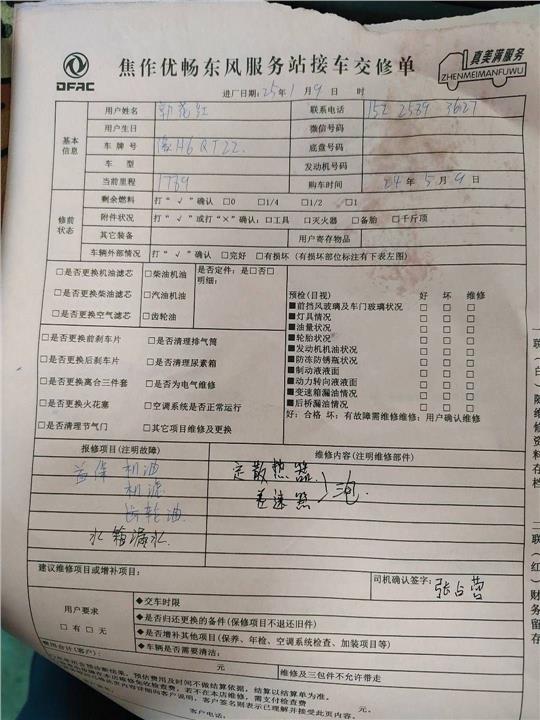 DFAC
焦作优畅东风服务站接车交修单
真美满服务
ZHENMEIMANFUWU
进厂日期：25年1月9日 时
基本信息
用户姓名 联系电话 152 2589 3627
用户生日 微信号码
车牌号 H6QT22 底盘号码
车 型 发动机号码
当前里程 1789 购车时间 24年5月9日
修前状态
剩余燃料 打“√”确认 □0 □1/4 □1/2 □1
附件状况 打“√”或打“×”确认：□工具 □灭火器 □备胎 □千斤顶
其它装备 用户寄存物品
车辆外部情况 打“√”确认 □完好 □有损坏（有损坏部位标注有下表左图）
□是否更换机油滤芯 □柴油机油 是否定件：是□否□
明细：
□是否更换柴油滤芯 □汽油机油
□是否更换空气滤芯 □齿轮油
□是否更换前刹车片 □是否清理排气筒
□是否更换后刹车片 □是否清理尿素箱
□是否更换离合三件套 □是否为电气维修
□是否更换火花塞 □空调系统是否正常运行
□是否清理节气门 □其它项目维修及更换
预检(目视) 好 坏 维修
■前挡风玻璃及车门玻璃状况 □ □ □
■灯具情况 □ □ □
■油量状况 □ □ □
■轮胎状况 □ □ □
■发动机机油状况 □ □ □
■防冻防锈瓶状况 □ □ □
■制动液液面 □ □ □
■动力转向液液面 □ □ □
■变速箱漏油情况 □ □ □
■后桥漏油情况 □ □ □
好：合格 坏：有故障需维修维修：用户确认维修
报修项目(注明故障) 维修内容(注明维修部件)
保 机油 定散热器
机滤 差速器
齿轮油
水箱漏水
建议维修项目或增补项目：
司机确认签字：张占营
用户要求
□有□无
◆交车时限
◆是否归还更换的备件(保修项目不退还旧件)
◆是否增补其他项目(保养、年检、空调系统检查、加装项目等)
◆车辆是否需要清洁：
费用合计(客户)： 元 维修及三包件不允许带走
诊断结果，预估费用及时间不做结算依据，结算以结算单为准。
在本店维修免收检查费，若不在本店维修，需支付检查费 元
内容详细向客户说明，客户签名则表示已理解并接受此页内容。
客户电话：
一联(白)随维修资料存档
二联(红)财务留存